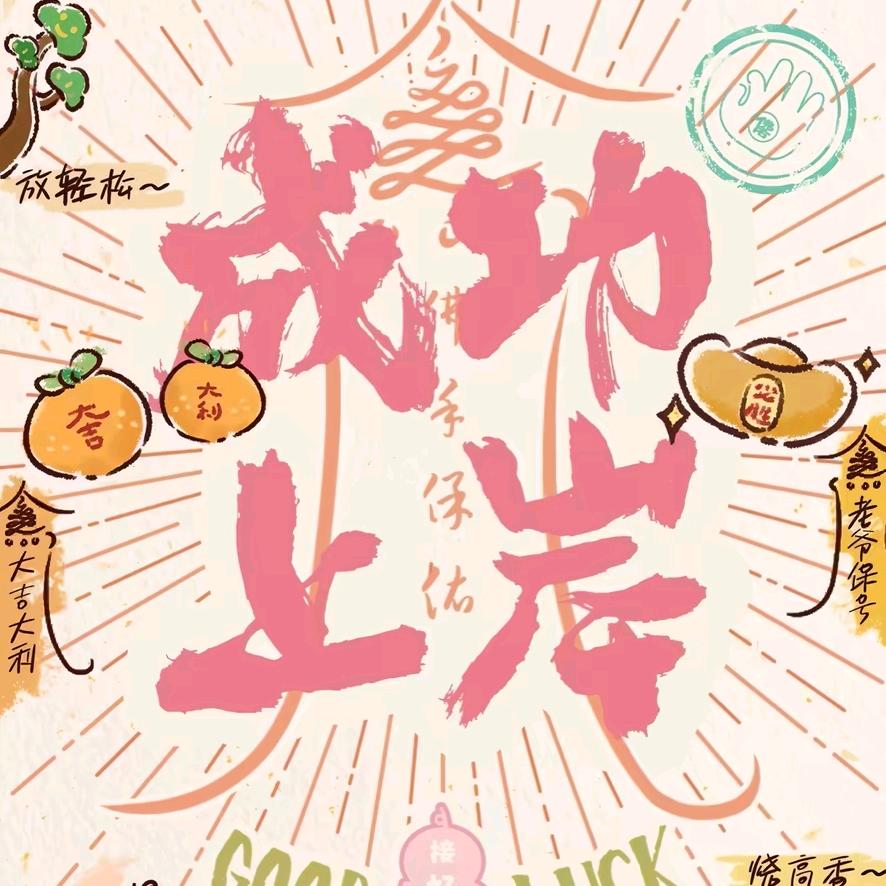 放轻松~
成功
上岸
佛手保佑
大吉
大利
必胜
大吉大利
老爷保号
GOOD LUCK
接好
烧高香~